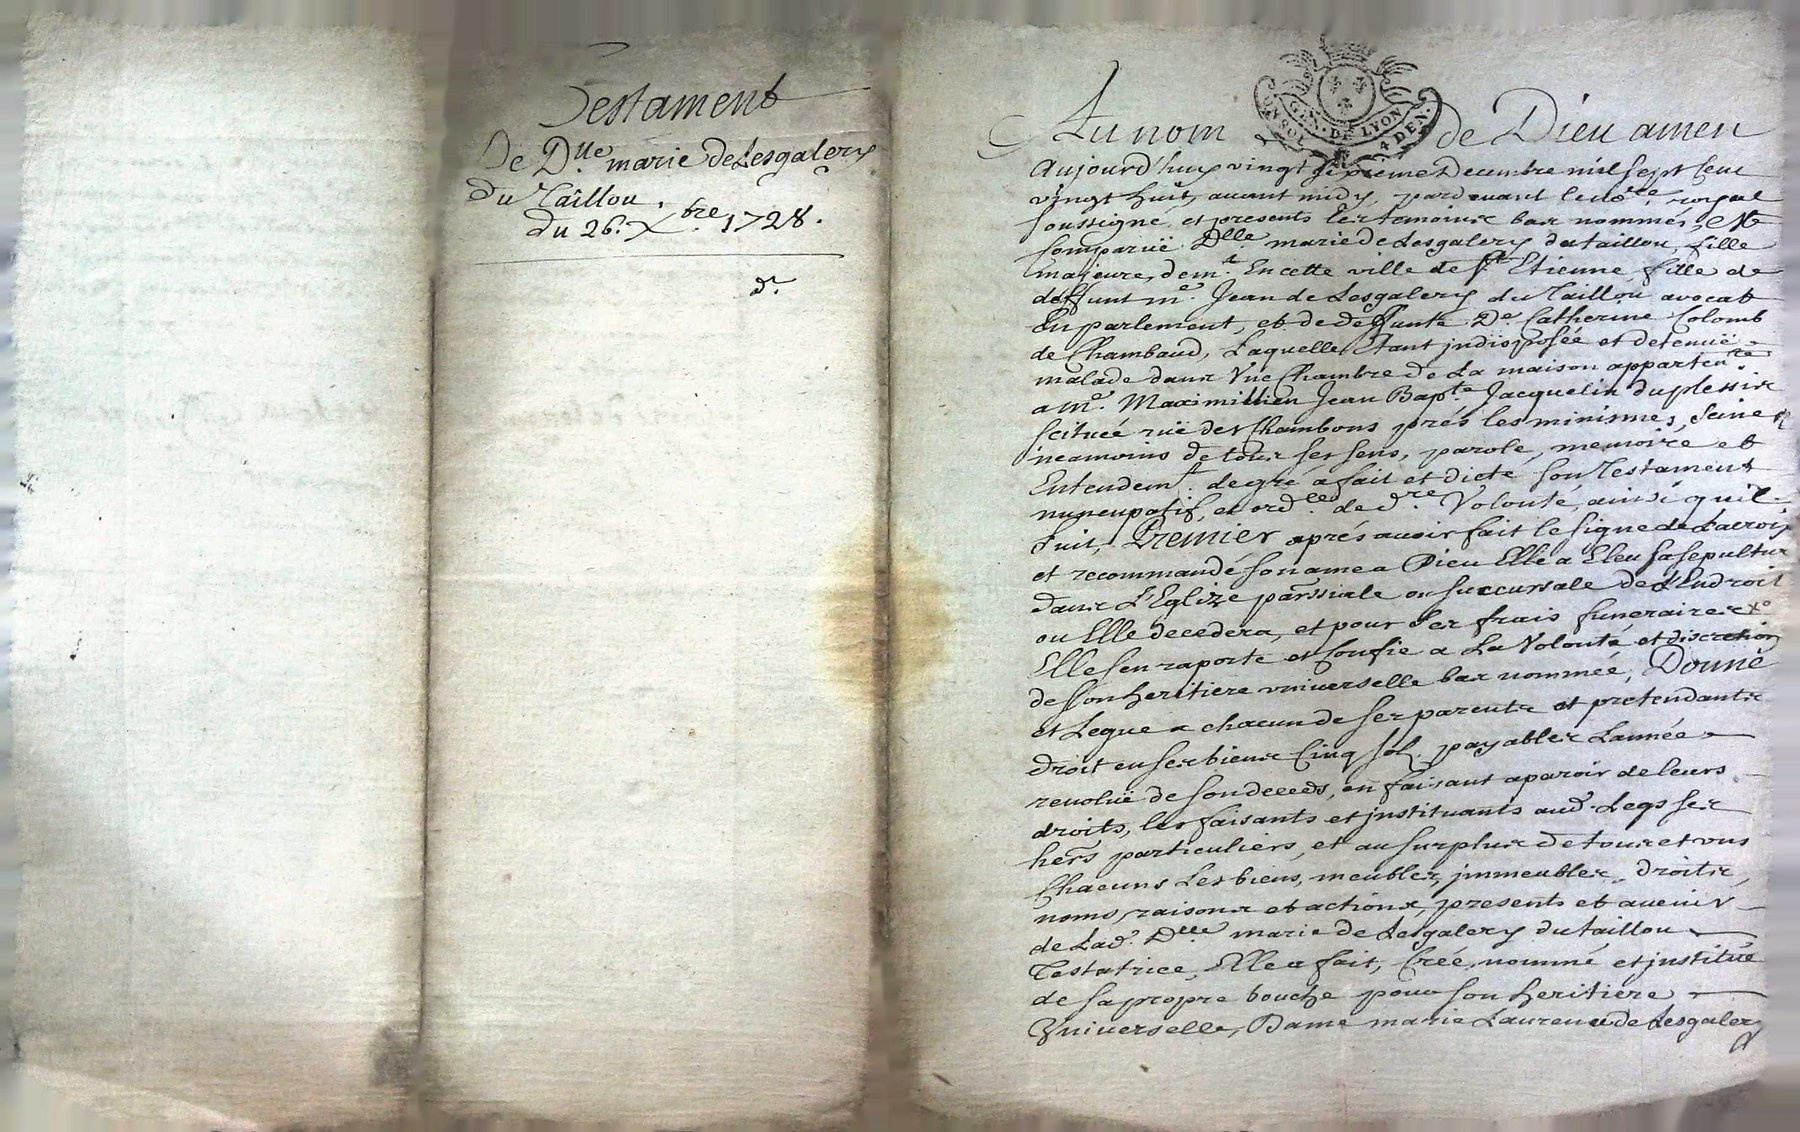 Testament
De Dlle. marie de Lesgalery
du Taillou.
du 26. Xbre. 1728.
dt.
G. N. DE LYON
4 DEN.
Au nom de Dieu amen
Aujourd'huy vingt sixieme Decembre mil sept cent
vingt huit, avant midy, pardevant le nore. royal
soussigné, et presents les temoins bas nommés, est
comparuë Dlle. marie de Lesgalery du taillou, fille
majeure, demt. En cette ville de St Etienne fille de
deffunt me. Jean de Lesgalery du Taillou avocat
En parlement, et de deffunte De. Catherine Colomb
de Chambaud, Laquelle Etant jndisposée et detenuë
malade dans Vne Chambre de La maison appartente.
a me. Maximillien Jean Bapte. Jacquelin duplessis
scituée ruë des Chambons prés les minimes, Seine
neamoins de tous ses sens, parole, memoire et
Entendemt. de gré a fait et dicté son Testament
nuncupatif, et ordce. de dre. Volonté, ainsi quil
suit, Premier aprés avoir fait le signe de Lacroix
et recommandé son ame a Dieu Elle a Eleu sa sepulture
dans L'Eglize parssiale ou succursale de L'Endroit
ou Elle decedera, et pour ses frais funeraires
Elle s'en raporte et confie a La Volonté et discretion
de son heritiere vniverselle bas nommée, Donne
et Legue a chacun de ses parents et pretendants
droit en ses biens Cinq sols payables Lannée
revoluë de son deceds, en faisant aparoir de leurs
droits, les faisants et jnstituants aud. Legs ses
hers particuliers, et au surplus de tous et vns
Chacuns Les biens, meubles, jmmeubles, droits,
noms, raisons et actions, presents et avenir
de Lad. Dlle. marie de Lesgalery du taillou
Testatrice, Elle a fait, Créé, nommé et jnstitué
de sa propre bouche pour son heritiere
Vniverselle, Dame marie Laurence de Lesgalery